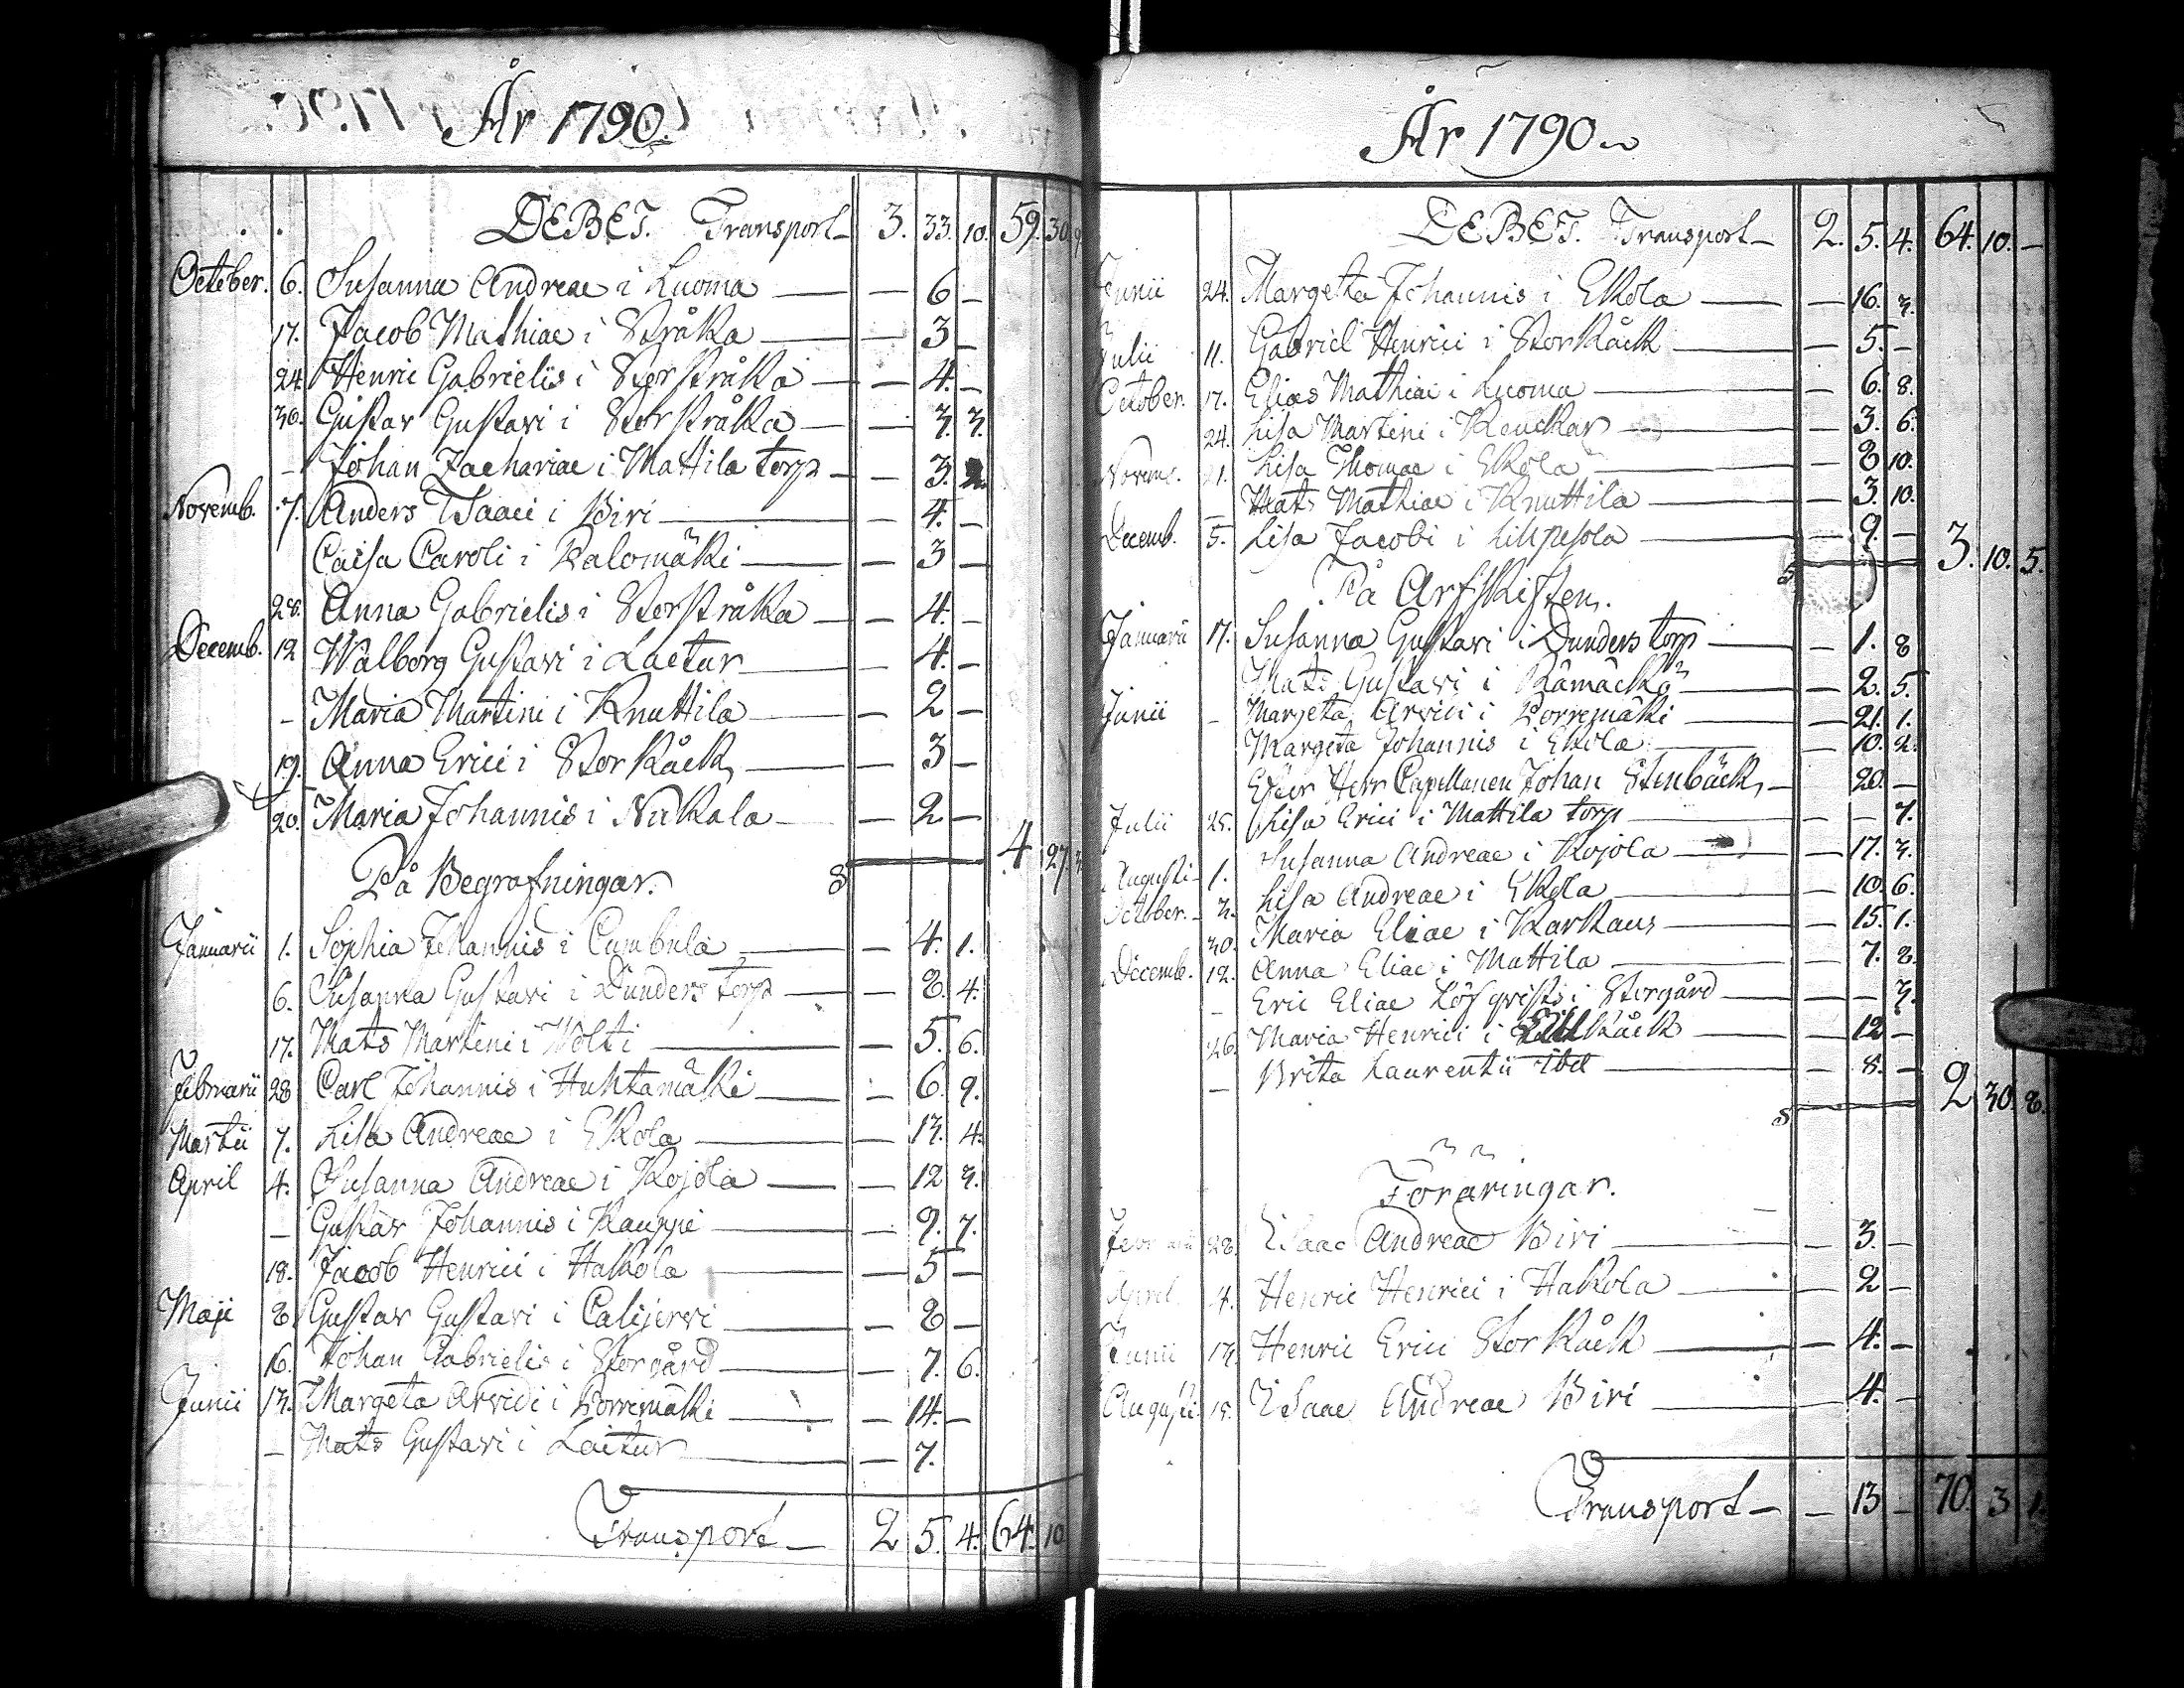 År 1790.
DEBET. Transport 3. 33. 10. 59. 30. 9
October. 6. Susanna Andreae i Luoma — — 6 —
17. Jacob Mathiae i Stråka — — 3 —
24 Henric Gabrielis i Storstråka — — 4. —
30. Gustav Gustavi i Storstråka — — 3. 3.
— Johan Zachariae i Mattila torp — — 3.
Novemb. 7. Anders Isaaci i Biri — — 4. —
Caisa Caroli i Palomäki — — 3 —
28. Anna Gabrielis i Storstråka — — 4. —
Decemb. 12 Walborg Gustavi i Laetur — — 4. —
— Maria Martini i Knuttila — — 2 —
19. Anna Erici i Storkåck — — 3 —
20. Maria Johannis i Nukala — — 2 —
4 27.
På Begrafningar.
Januarii 1. Sophia Johannis i Cumbula — — 4. 1.
6. Susanna Gustavi i Dunders torp — — 8. 4.
17. Mats Martini i Wolti — — 5. 6.
Februarii 28 Carl Johannis i Huhtamäki — — 6. 9.
Martii 7. Lisa Andreae i Ekola — — 13. 4.
April 4. Susanna Andreae i Kojola — — 12 3.
— Gustav Johannis i Kauppi — — 9. 7.
18. Jacob Henrici i Hakola — — 5 —
Maji 8. Gustav Gustavi i Calijervi — — 8 —
16. Johan Gabrielis i Storgård — — 7. 6.
Junii 13. Margeta Arvidi i Porremäki — — 14. —
— Mats Gustavi i Laitur — — 7.
Transport — 2 5. 4. 64. 10
År 1790.
DEBET. Transport — 2. 5. 4. 64. 10. —
Junii 24. Margeta Johannis i Ekola — — 16. 3.
Julii 11. Gabriel Henrici i Storkåck — — 5. —
October. 17. Elias Mathiae i Luoma — — 6. 8.
24. Lisa Martini i Kauckar — — 3. 6.
Novemb. 21. Lisa Thomae i Ekola — — 8 10.
— Mats Mathiae i Knuttila — — 3. 10.
Decemb. 5. Lisa Jacobi i Lillpesola — — 9. —
3. 10. 5.
På Arfskiften.
Januarii 17. Susanna Gustavi i Dunders torp — — 1. 8
Mats Gustavi i Kåmäckö — — 2. 5.
Junii — Margeta Arvidi i Porremäki — — 21. 1.
Margeta Johannis i Ekola — — 10. 2.
Efter Herr Capellanen Johan Stenbäck — 20. —
Julii 25. Lisa Erici i Mattila torp — — — 7.
Augusti 1. Susanna Andreae i Kojola — — 17. 3.
October. 3. Lisa Andreae i Ekola — — 10. 6.
30. Maria Eliae i Karkaus — — 15. 1.
Decemb. 12. Anna Eliae i Mattila — — 7. 8.
— Eric Eliae Löfqvist i Storgård — — — 3.
26. Maria Henrici i Lillkåck — — 12 —
— Brita Laurentii ibd — — 8. —
2 30. 8.
Föräringar.
Februarii 28. Isaac Andreae Biri — — 3. —
April. 4. Henric Henrici i Hakola — — 2 —
Junii 13. Henric Erici Storkåck — — 4. —
Augusti. 15. Isaac Andreae Biri — — 4. —
Transport — — 13 — 70. 3 1.